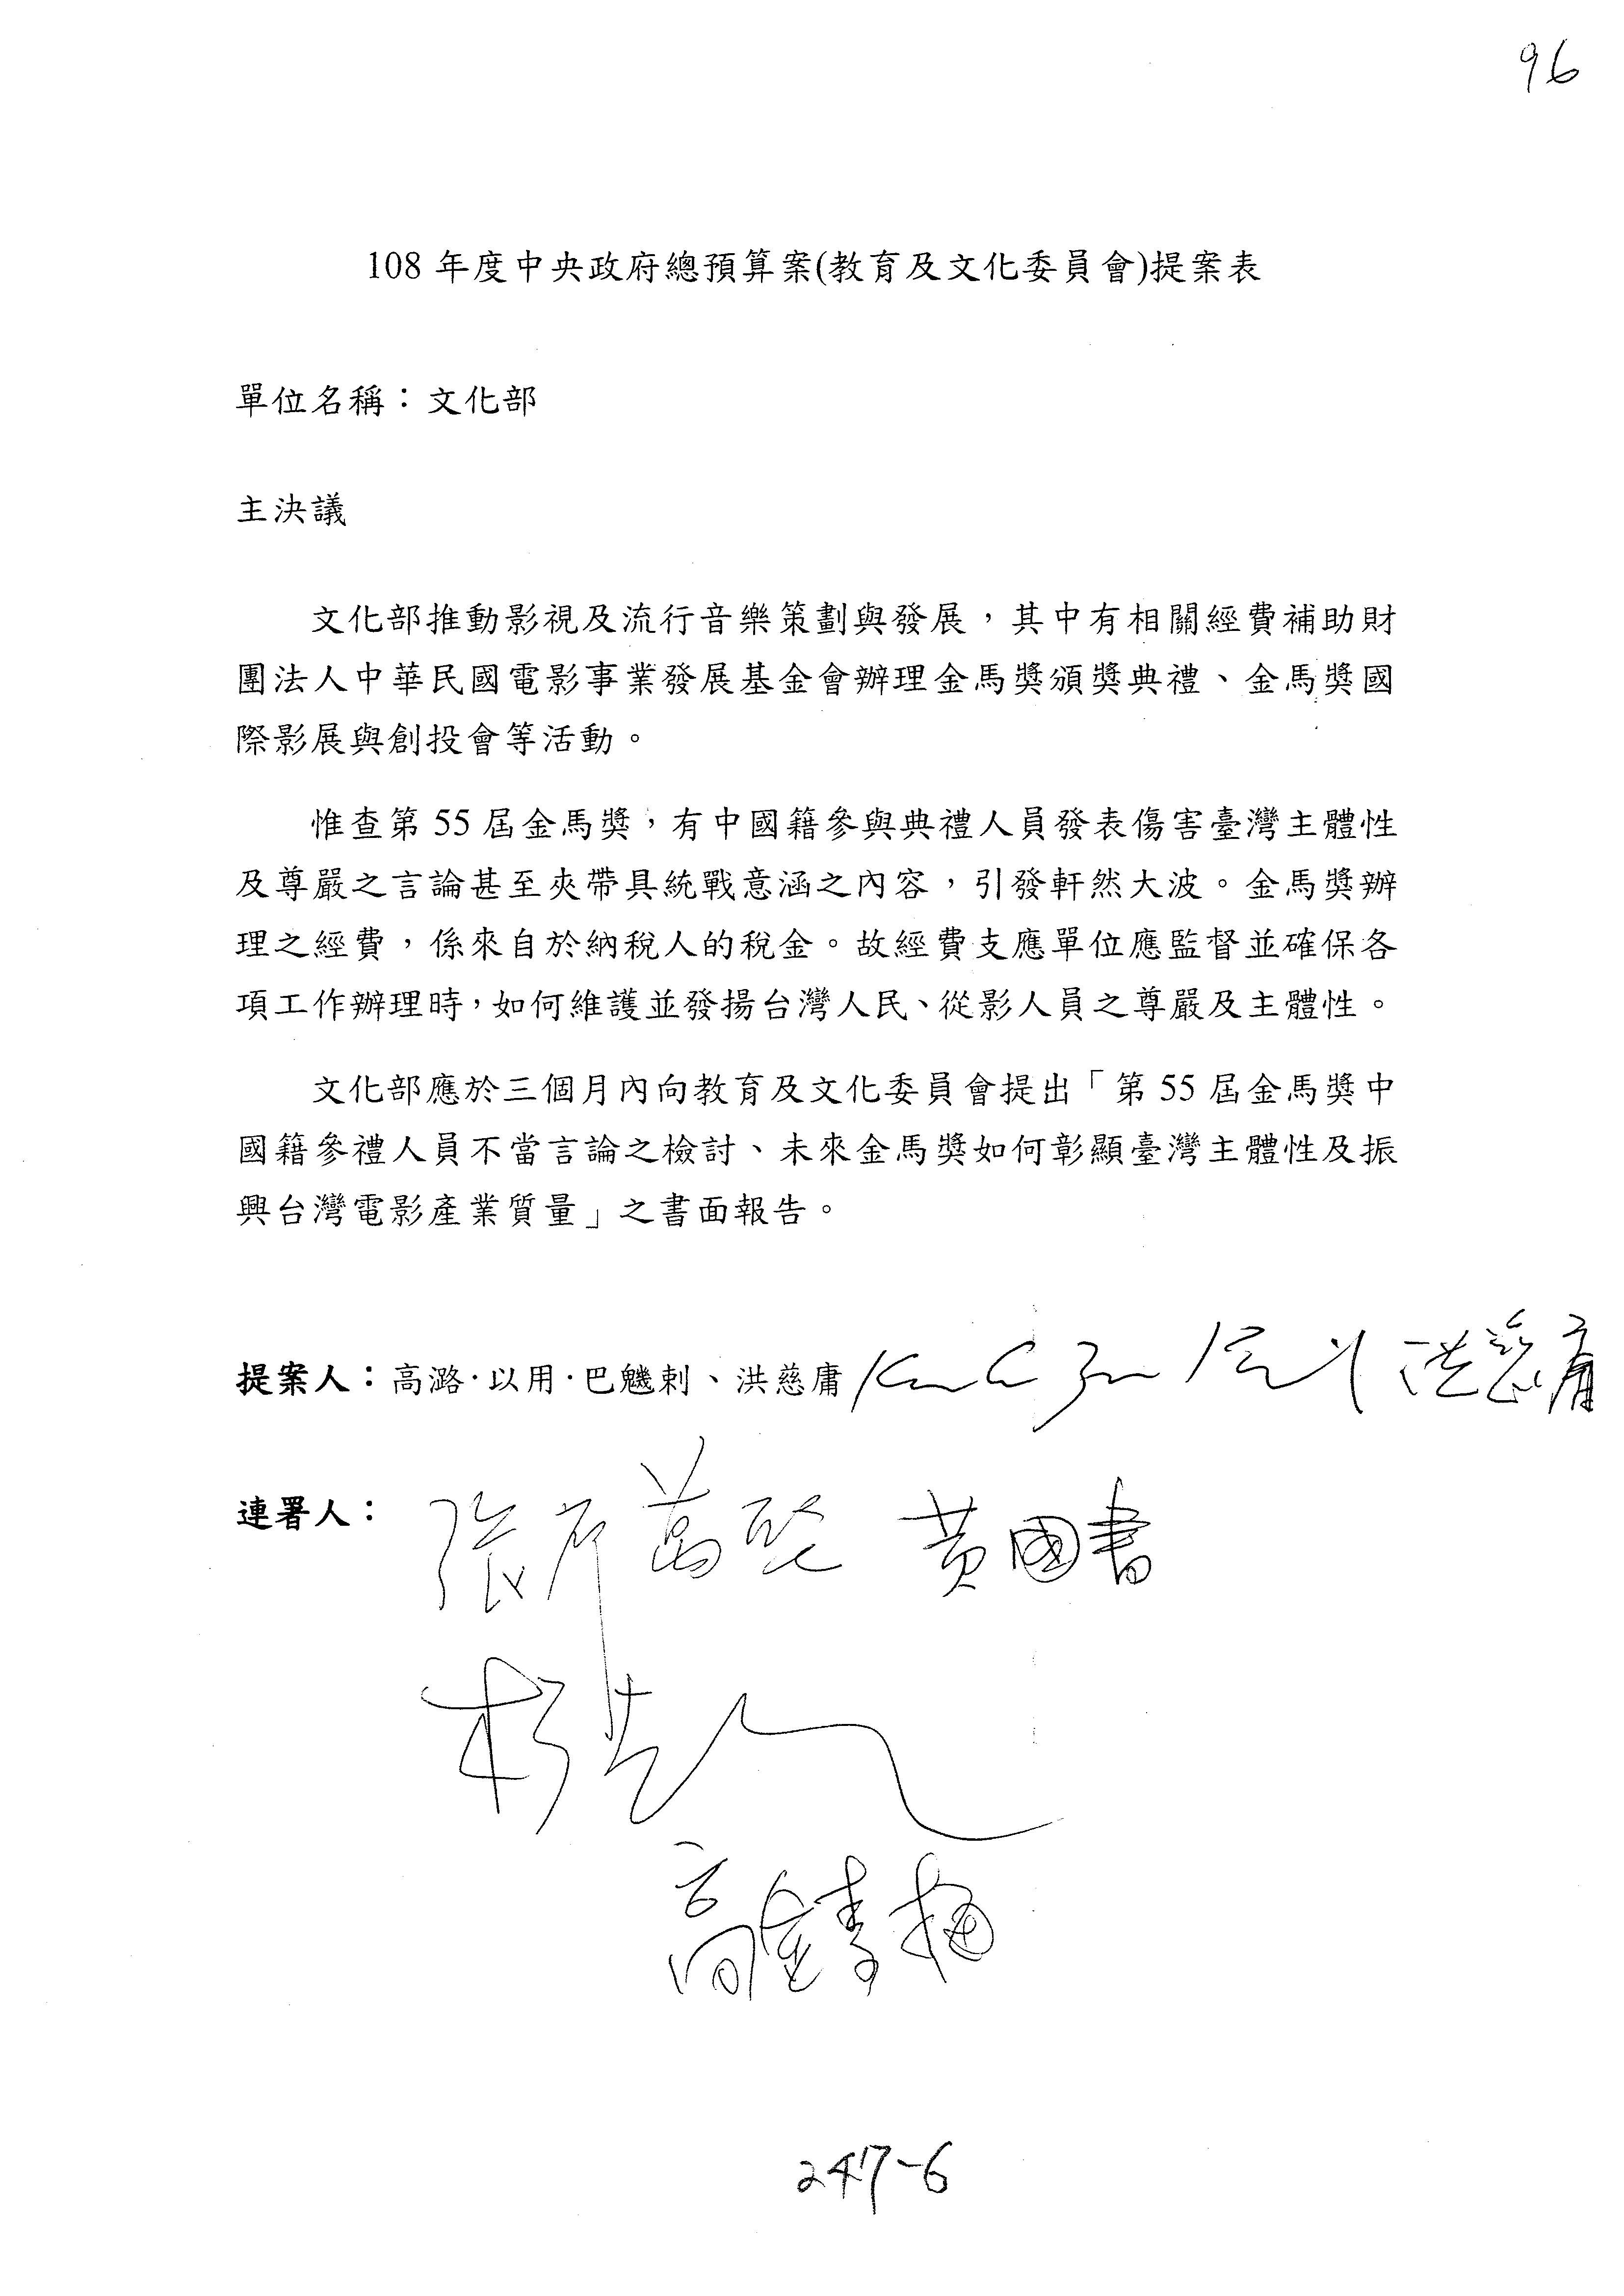 96
108 年度中央政府總預算案(教育及文化委員會)提案表
單位名稱：文化部
主決議
文化部推動影視及流行音樂策劃與發展，其中有相關經費補助財
團法人中華民國電影事業發展基金會辦理金馬獎頒獎典禮、金馬獎國
際影展與創投會等活動。
惟查第 55 屆金馬獎，有中國籍參與典禮人員發表傷害臺灣主體性
及尊嚴之言論甚至夾帶具統戰意涵之內容，引發軒然大波。金馬獎辦
理之經費，係來自於納稅人的稅金。故經費支應單位應監督並確保各
項工作辦理時，如何維護並發揚台灣人民、從影人員之尊嚴及主體性。
文化部應於三個月內向教育及文化委員會提出「第 55 屆金馬獎中
國籍參禮人員不當言論之檢討、未來金馬獎如何彰顯臺灣主體性及振
興台灣電影產業質量」之書面報告。
提案人：高潞·以用·巴魕剌、洪慈庸 洪慈庸
連署人：
張廖萬堅 黃國書
高金素梅
247-6